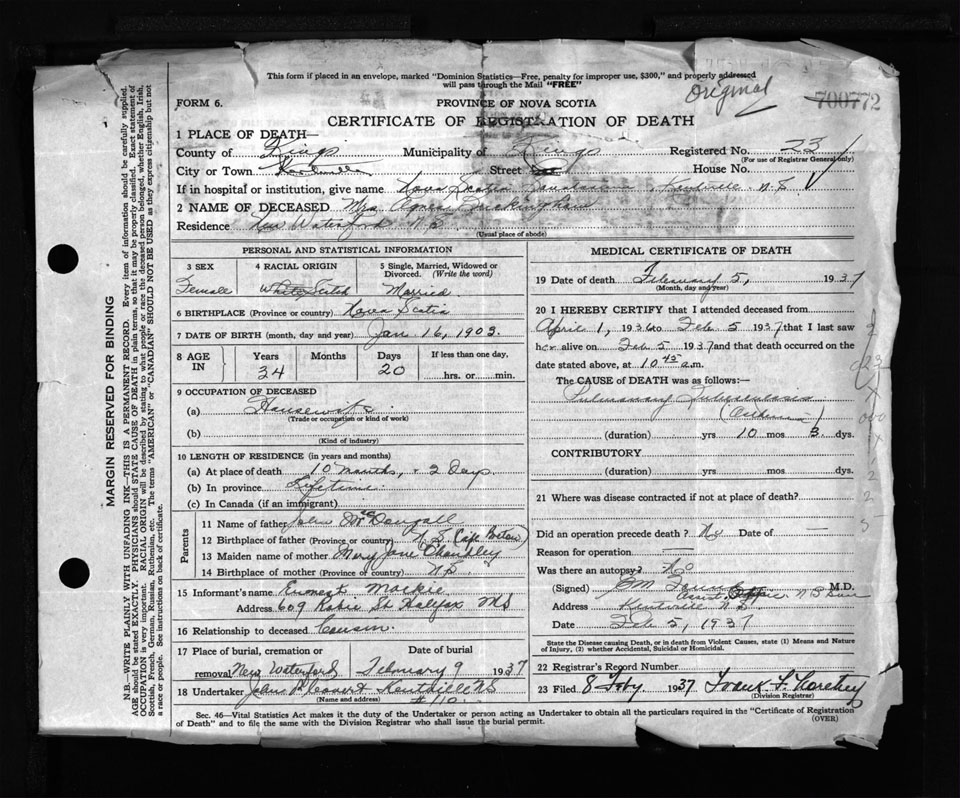 This form if placed in an envelope, marked "Dominion Statistics—Free, penalty for improper use, $300," and properly addressed
will pass through the Mail "FREE"
Original
700772
FORM 6.
PROVINCE OF NOVA SCOTIA
CERTIFICATE OF REGISTRATION OF DEATH
1 PLACE OF DEATH—
County of Kings Municipality of Kings Registered No. 23
(For use of Registrar General only)
City or Town Kentville Street House No.
If in hospital or institution, give name Nova Scotia Sanatorium Kentville N.S.
2 NAME OF DECEASED Mrs. Agnes Buckingham
Residence New Waterford N.S.
(Usual place of abode)
PERSONAL AND STATISTICAL INFORMATION
3 SEX 4 RACIAL ORIGIN 5 Single, Married, Widowed or Divorced. (Write the word)
Female White Scotch Married
6 BIRTHPLACE (Province or country) Nova Scotia
7 DATE OF BIRTH (month, day and year) Jan 16, 1903.
8 AGE IN Years Months Days If less than one day,
34 20 hrs. or min.
9 OCCUPATION OF DECEASED
(a) Housewife
(Trade or occupation or kind of work)
(b)
(Kind of industry)
10 LENGTH OF RESIDENCE (in years and months)
(a) At place of death 10 months, + 2 Days
(b) In province Lifetime
(c) In Canada (if an immigrant)
Parents
11 Name of father John McDougall
12 Birthplace of father (Province or country) N.S. (Cape Breton)
13 Maiden name of mother Mary Jane O'Handley
14 Birthplace of mother (Province or country) N.S.
15 Informant's name Ernest Mackie
Address 609 Robie St Halifax NS
16 Relationship to deceased Cousin.
17 Place of burial, cremation or removal Date of burial
New Waterford February 9 1937
18 Undertaker John Kentville NS
(Name and address)
MEDICAL CERTIFICATE OF DEATH
19 Date of death February 5, 1937
(Month, day and year)
20 I HEREBY CERTIFY that I attended deceased from
April 1, 1936 to Feb 5 1937 that I last saw
her alive on Feb 5 1937 and that death occurred on the
date stated above, at 10 45 a.m.
The CAUSE OF DEATH was as follows:—
Pulmonary Tuberculosis
(duration) yrs 10 mos 3 dys.
CONTRIBUTORY
(duration) yrs mos dys.
21 Where was disease contracted if not at place of death?
Did an operation precede death? No Date of
Reason for operation
Was there an autopsy? No
(Signed) M.D.
Address Kentville N.S.
Date Feb 5, 1937
State the Disease causing Death, or in death from Violent Causes, state (1) Means and Nature
of Injury, and (2) whether Accidental, Suicidal or Homicidal.
22 Registrar's Record Number
23 Filed 8 Feby 1937 Frank
(Division Registrar)
Sec. 46—Vital Statistics Act makes it the duty of the Undertaker or person acting as Undertaker to obtain all the particulars required in the "Certificate of Registration
of Death" and to file the same with the Division Registrar who shall issue the burial permit. (OVER)
MARGIN RESERVED FOR BINDING
N.B.—WRITE PLAINLY WITH UNFADING INK—THIS IS A PERMANENT RECORD. Every item of information should be carefully supplied.
AGE should be stated EXACTLY. PHYSICIANS should STATE CAUSE OF DEATH in plain terms, so that it may be properly classified. Exact statement of
OCCUPATION is very important. RACIAL ORIGIN will be described by stating to what people or race the deceased person belonged, whether English, Irish,
Scottish, French, German, Russian, Ruthenian, etc. The terms "AMERICAN" or "CANADIAN" SHOULD NOT BE USED as they express citizenship but not
a race or people. See instructions on back of certificate.